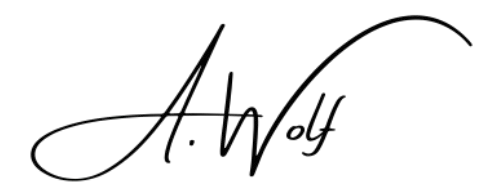 A. Wolf